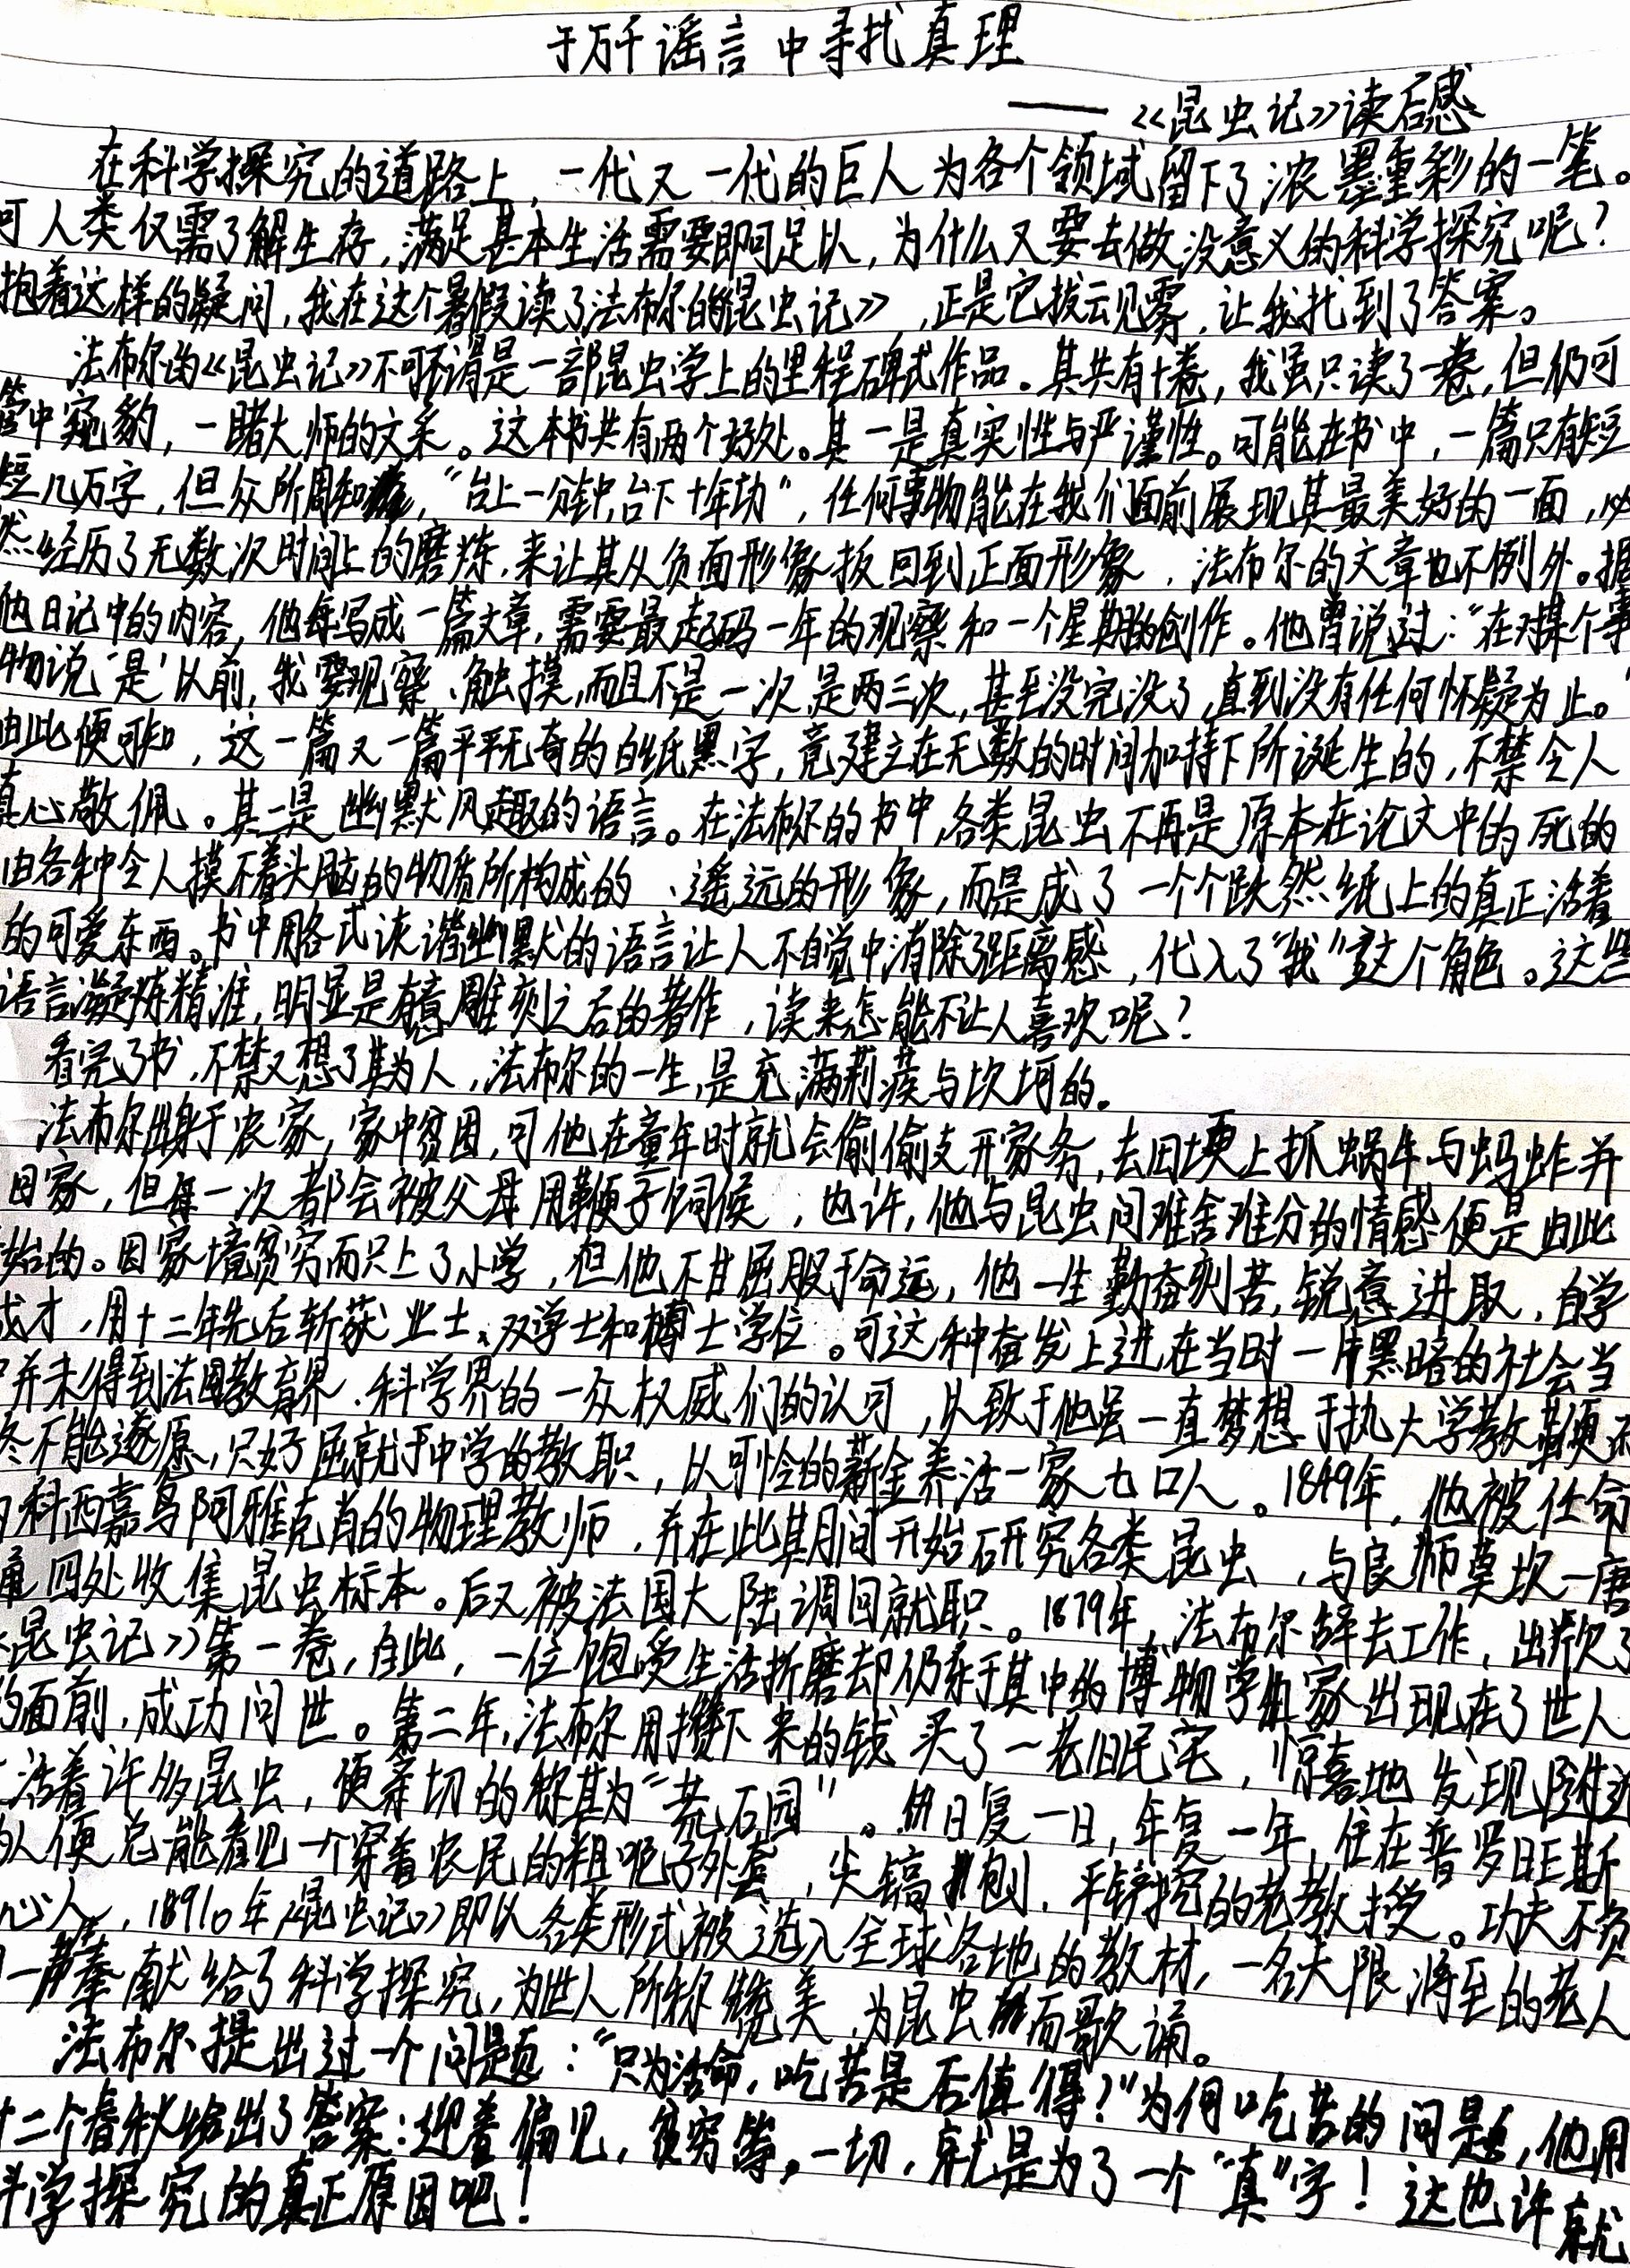 于万千谣言中寻找真理
——《昆虫记》读后感
在科学探究的道路上，一代又一代的巨人为各个领域留下了浓墨重彩的一笔。
可人类仅需了解生存，满足基本生活需要即可足以，为什么又要去做没意义的科学探究呢？
抱着这样的疑问，我在这个暑假读了法布尔的《昆虫记》，正是它拔云见雾，让我找到了答案。
法布尔的《昆虫记》不可不谓是一部昆虫学上的里程碑式作品。其共有十卷，我虽只读了一卷，但仍可
管中窥豹，一睹大师的文采。这本书共有两个好处。其一是真实性与严谨性。可能在书中，一篇只有短
短几万字，但众所周知，“台上一分钟，台下十年功”，任何事物能在我们面前展现其最美好的一面，必
然经历了无数次时间上的磨炼，来让其从负面形象扳回到正面形象，法布尔的文章也不例外。据
他日记中的内容，他每写成一篇文章，需要最起码一年的观察和一个星期的创作。他曾说过：“在对某个事
物说‘是’以前，我要观察、触摸，而且不是一次，是两三次，甚至没完没了，直到没有任何怀疑为止。”
由此便可知，这一篇又一篇平平无奇的白纸黑字，竟建立在无数的时间加持下所诞生的，不禁令人
真心敬佩。其二是幽默风趣的语言。在法布尔的书中，各类昆虫不再是原本在论文中的死的
由各种令人摸不着头脑的物质所构成的、遥远的形象，而是成了一个个跃然纸上的真正活着
的可爱东西。书中用各式诙谐幽默的语言让人不自觉中消除了距离感，代入了“我”这个角色。这些
语言凝炼精准，明显是有意雕刻之后的著作，读来怎能不让人喜欢呢？
看完了书，不禁又想了其为人，法布尔的一生，是充满荆棘与坎坷的。
法布尔出身于农家，家中贫困，可他在童年时就会偷偷支开家务，去田埂上抓蜗牛与蚂蚱并
回家，但每一次都会被父母用鞭子伺候，也许，他与昆虫间难舍难分的情感便是由此
始的。因家境贫穷而只上了小学，但他不甘屈服于命运，他一生勤奋刻苦，锐意进取，自学
成才，用十二年先后斩获业士、双学士和博士学位。可这种奋发上进在当时一片黑暗的社会当
中并未得到法国教育界、科学界的一众权威们的认可，以致于他虽一直梦想于执大学教鞭还
终不能遂愿，只好屈就于中学的教职，以可怜的薪金养活一家七口人。1849年，他被任命
为科西嘉岛阿雅克肖的物理教师，并在此其间开始研究各类昆虫，与良师莫坎—唐
通四处收集昆虫标本。后又被法国大陆调回就职。1879年，法布尔辞去工作，出版了
《昆虫记》第一卷，自此，一位饱受生活折磨却仍乐于其中的博物学家出现在了世人
的面前，成功问世。第二年，法布尔用攒下来的钱买了一老旧民宅，惊喜地发现附近
生活着许多昆虫，便亲切的称其为“荒石园”。日复一日，年复一年，住在普罗旺斯
的人便总能看见一个穿着农民的粗呢子外套，尖镐刨，平铲挖的老教授。功夫不负
心人，1910年《昆虫记》即以各类形式被选入全球各地的教材，一名大限将至的老人
一生奉献给了科学探究，为世人所称赞美，为昆虫而歌诵。
法布尔提出过一个问题：“只为活命，吃苦是否值得？”为何吃苦的问题，他用
十二个春秋给出了答案：迎着偏见，贫穷等，一切，就是为了一个“真”字！这也许就
科学探究的真正原因吧！